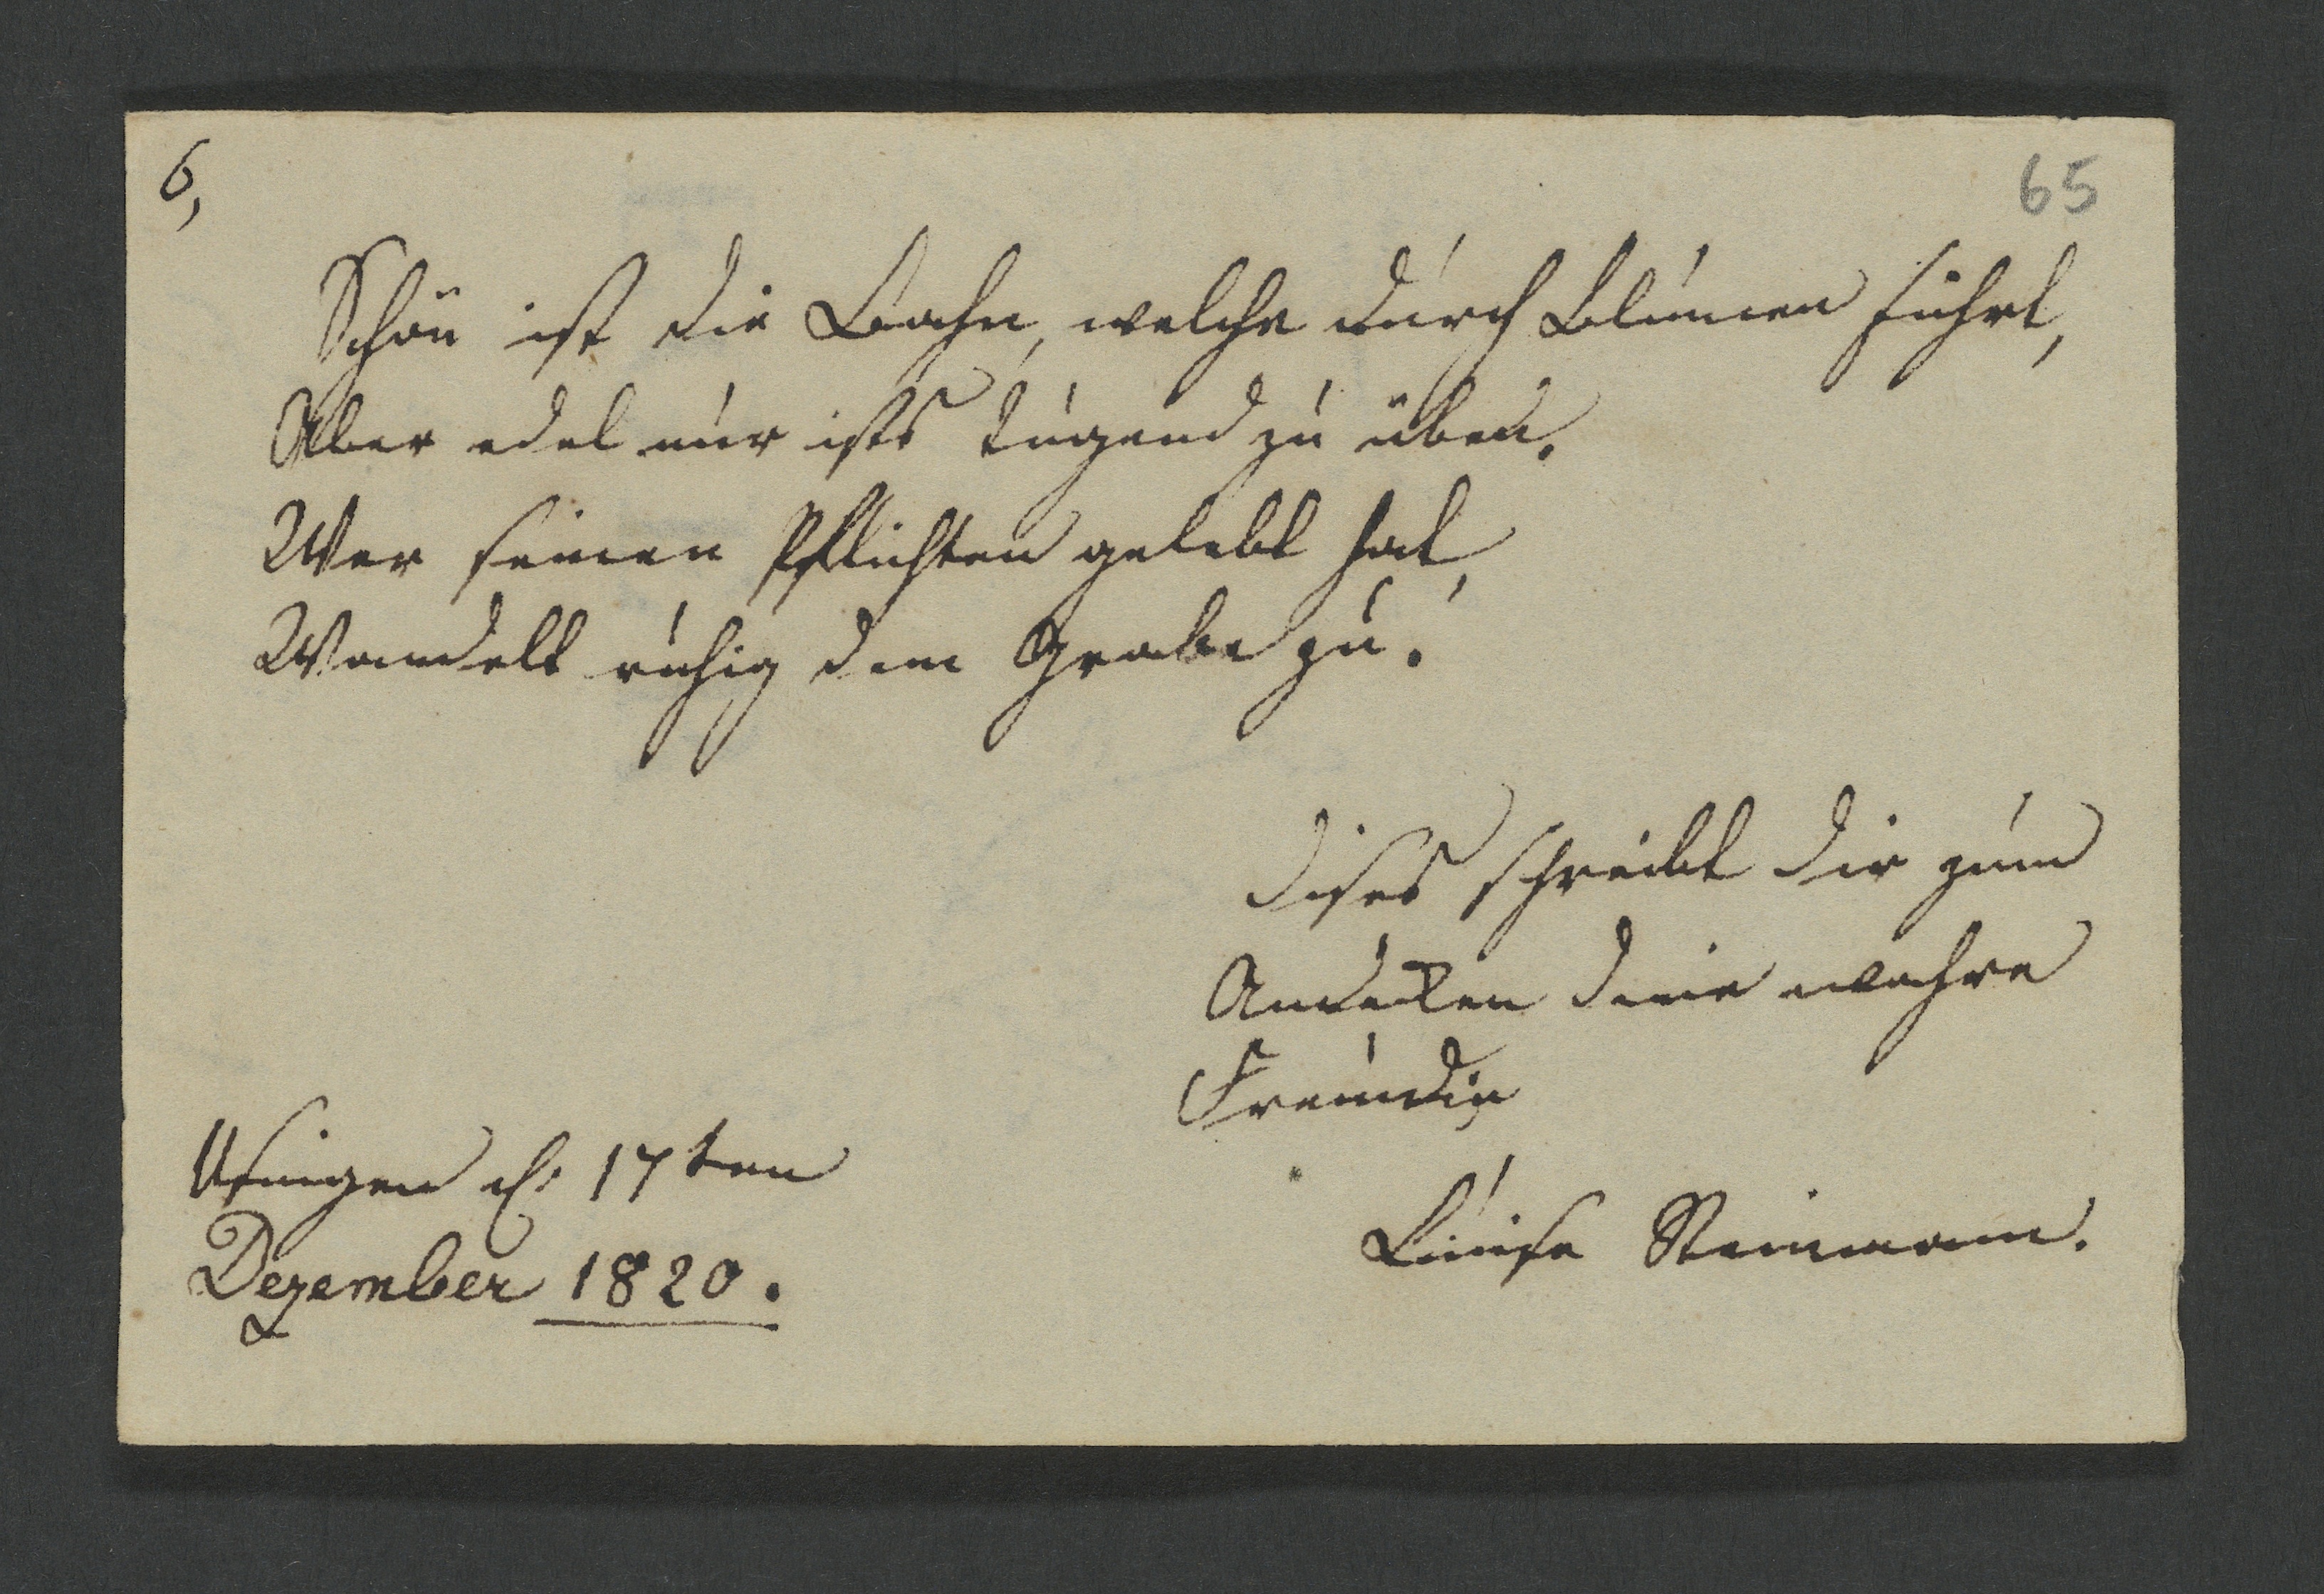 6,
65
Schön ist die Bahn, welche durch Blumen führt,
Aber edel nur ists Tugend zu üben.
Wer seinen Pflichten gelebt hat,
Wandelt ruhig dem Grabe zu.
Dises schreibt dir zum
Andeken deine wahre
Freundin
Usingen d. 17ten
Dezember 1820.
Luise Steinmann.